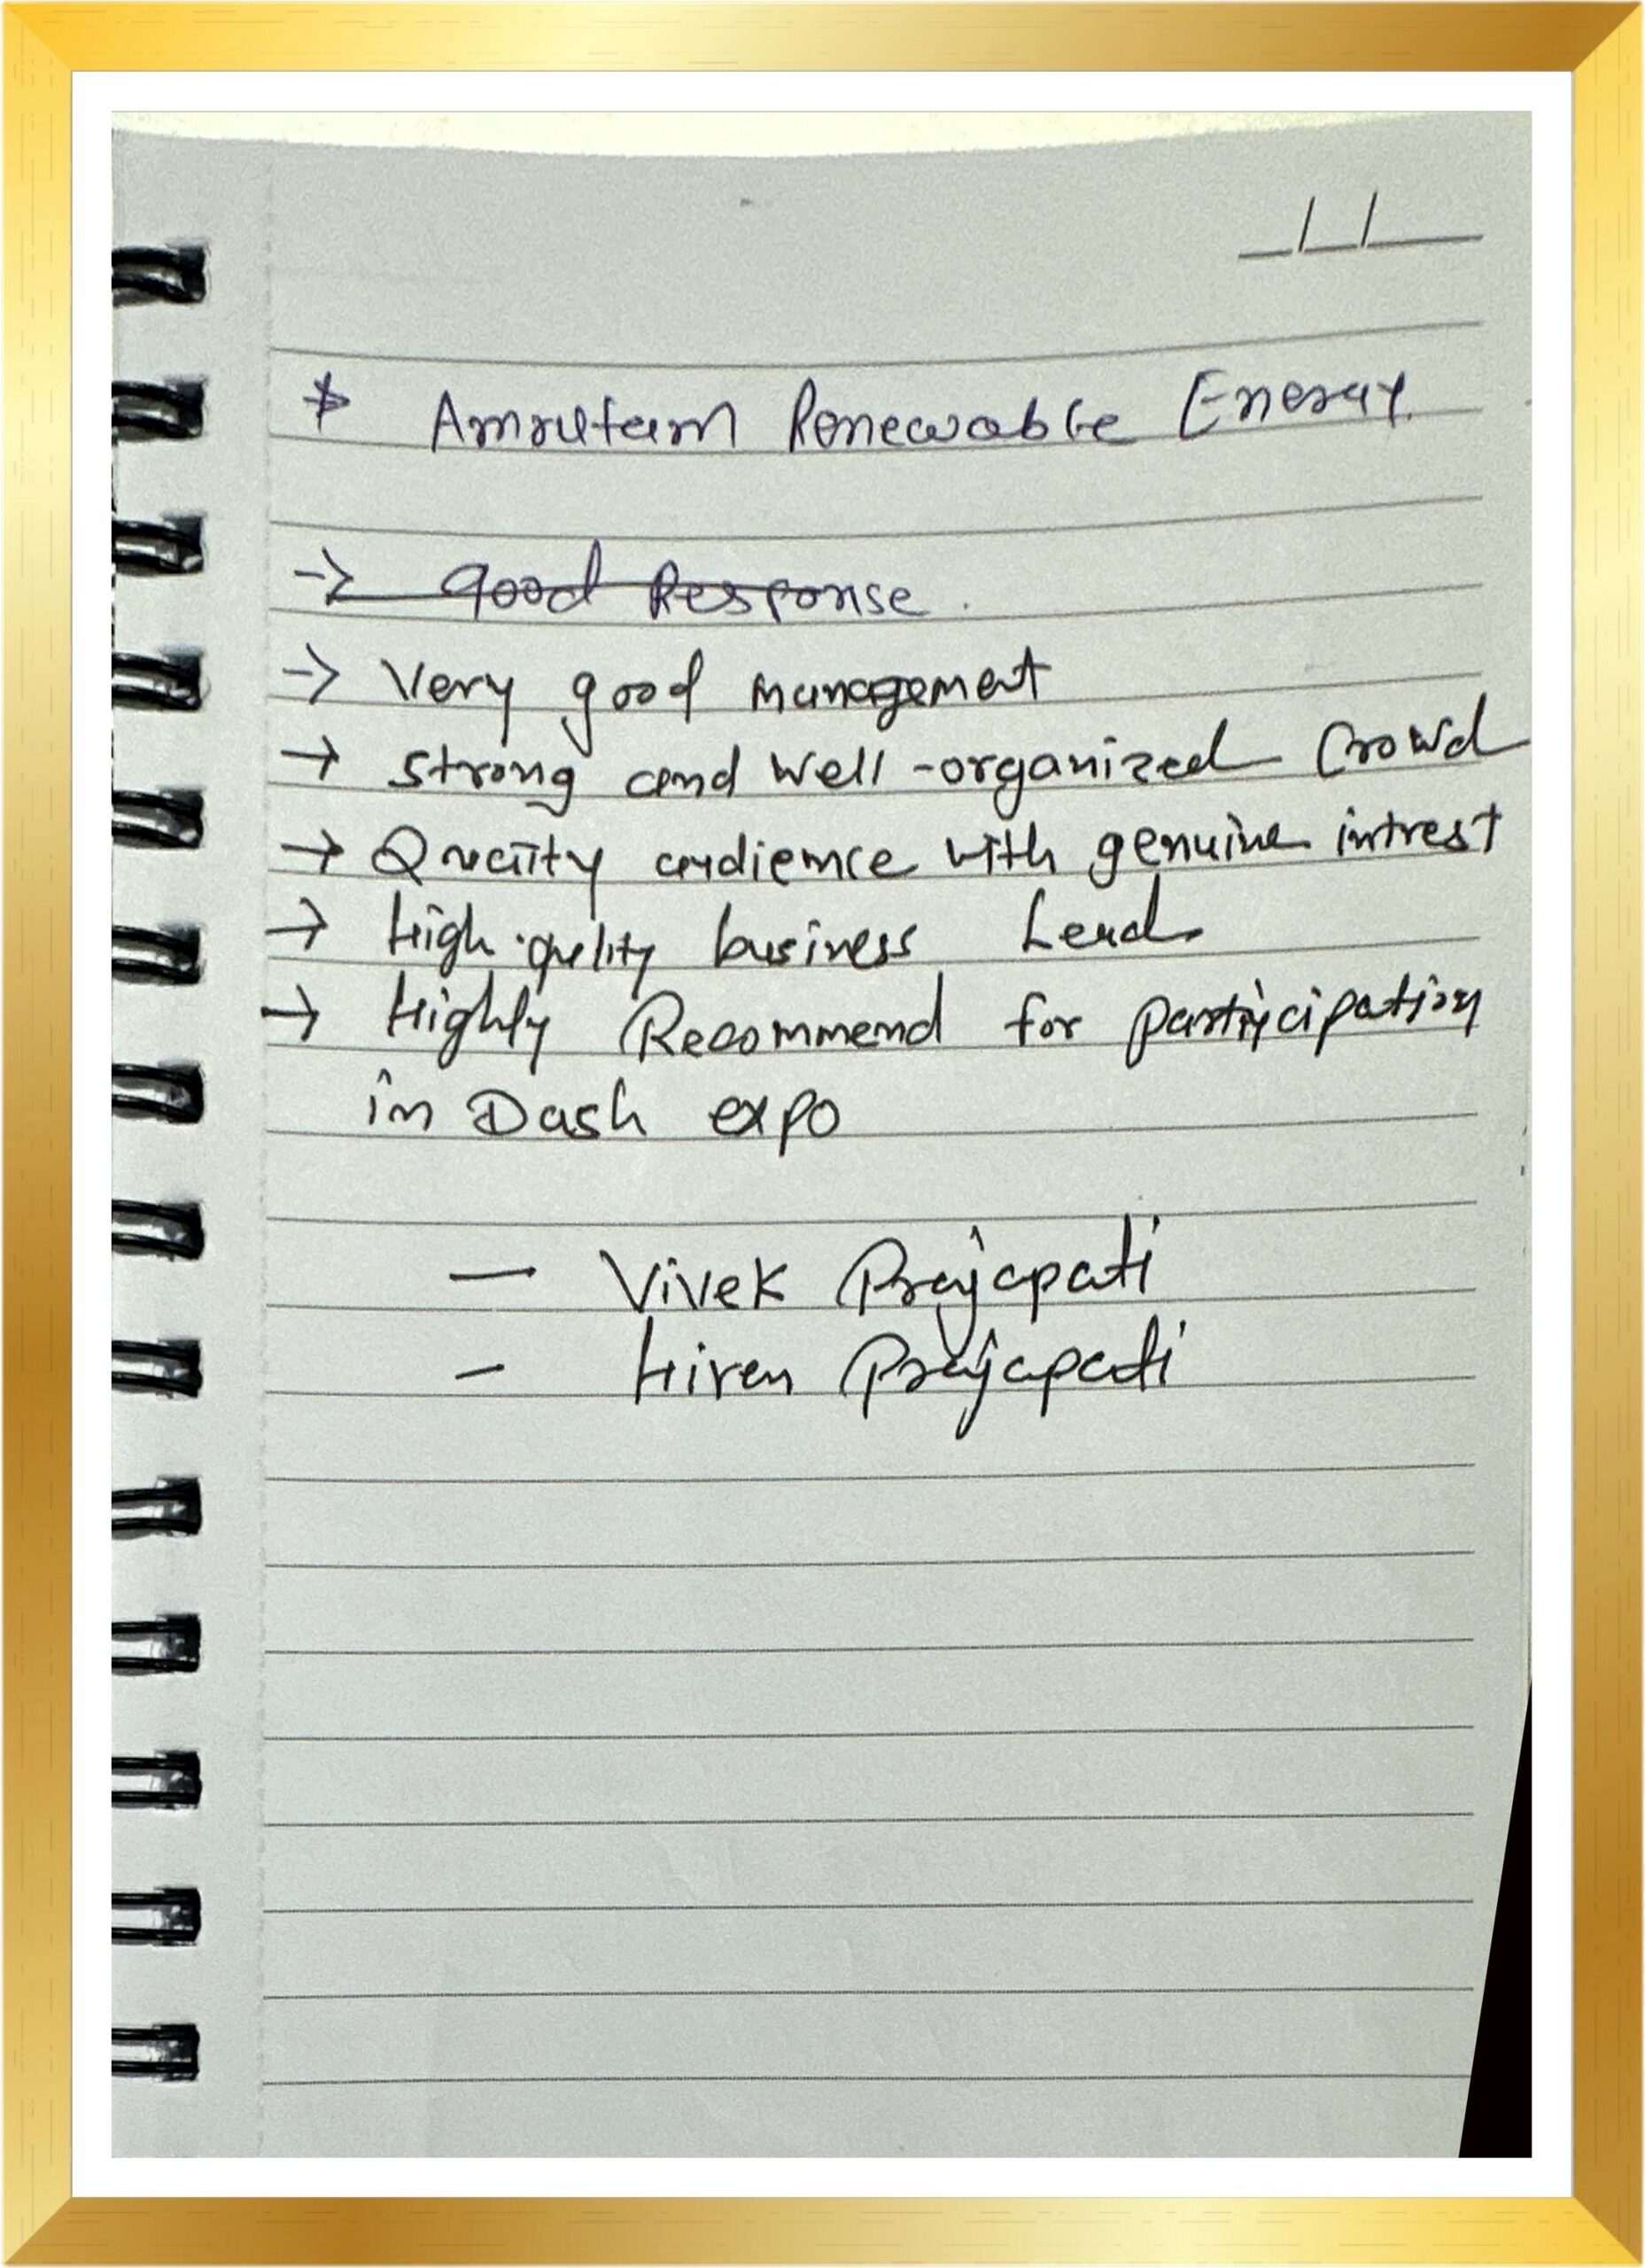 * Amrutam Renewable Energy.
→ Good Response.
→ Very good management
→ strong and well-organized crowd
→ Quality audience with genuine intrest
→ High-quality business Lead.
→ Highly Recommend for participation
in Dash expo
— Vivek Prajapati
- Hiren Prajapati